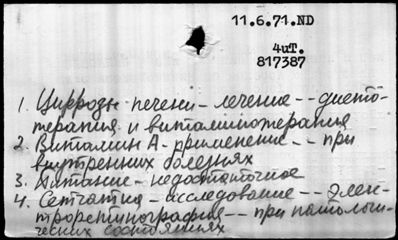 11.6.71.ND
4иT.
817387
1. Циррозы печени - лечение -- дието-
терапия и витаминотерапия
2. Витамин А - применение -- при
внутренних болезнях
3. Питание - недостаточное
4. Сетчатка - исследование -- элек-
троретинография -- при патологи-
ческих состояниях